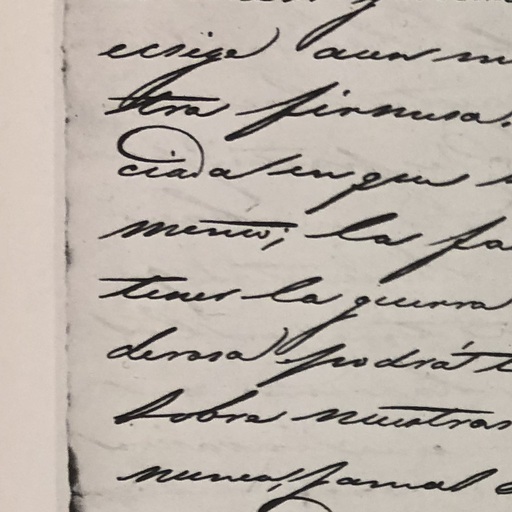 ecsige aun m
tra firmesa.
ciada en que
mento; la fa
tener la guerra
derosa podrá t
sobre nuestras
nunca, jamas